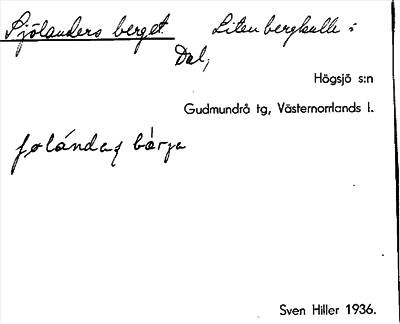 Sjölanders berget. Liten bergkulle i
Dal,
Högsjö s:n
Gudmundrå tg, Västernorrlands l.
bárja
Sven Hiller 1936.